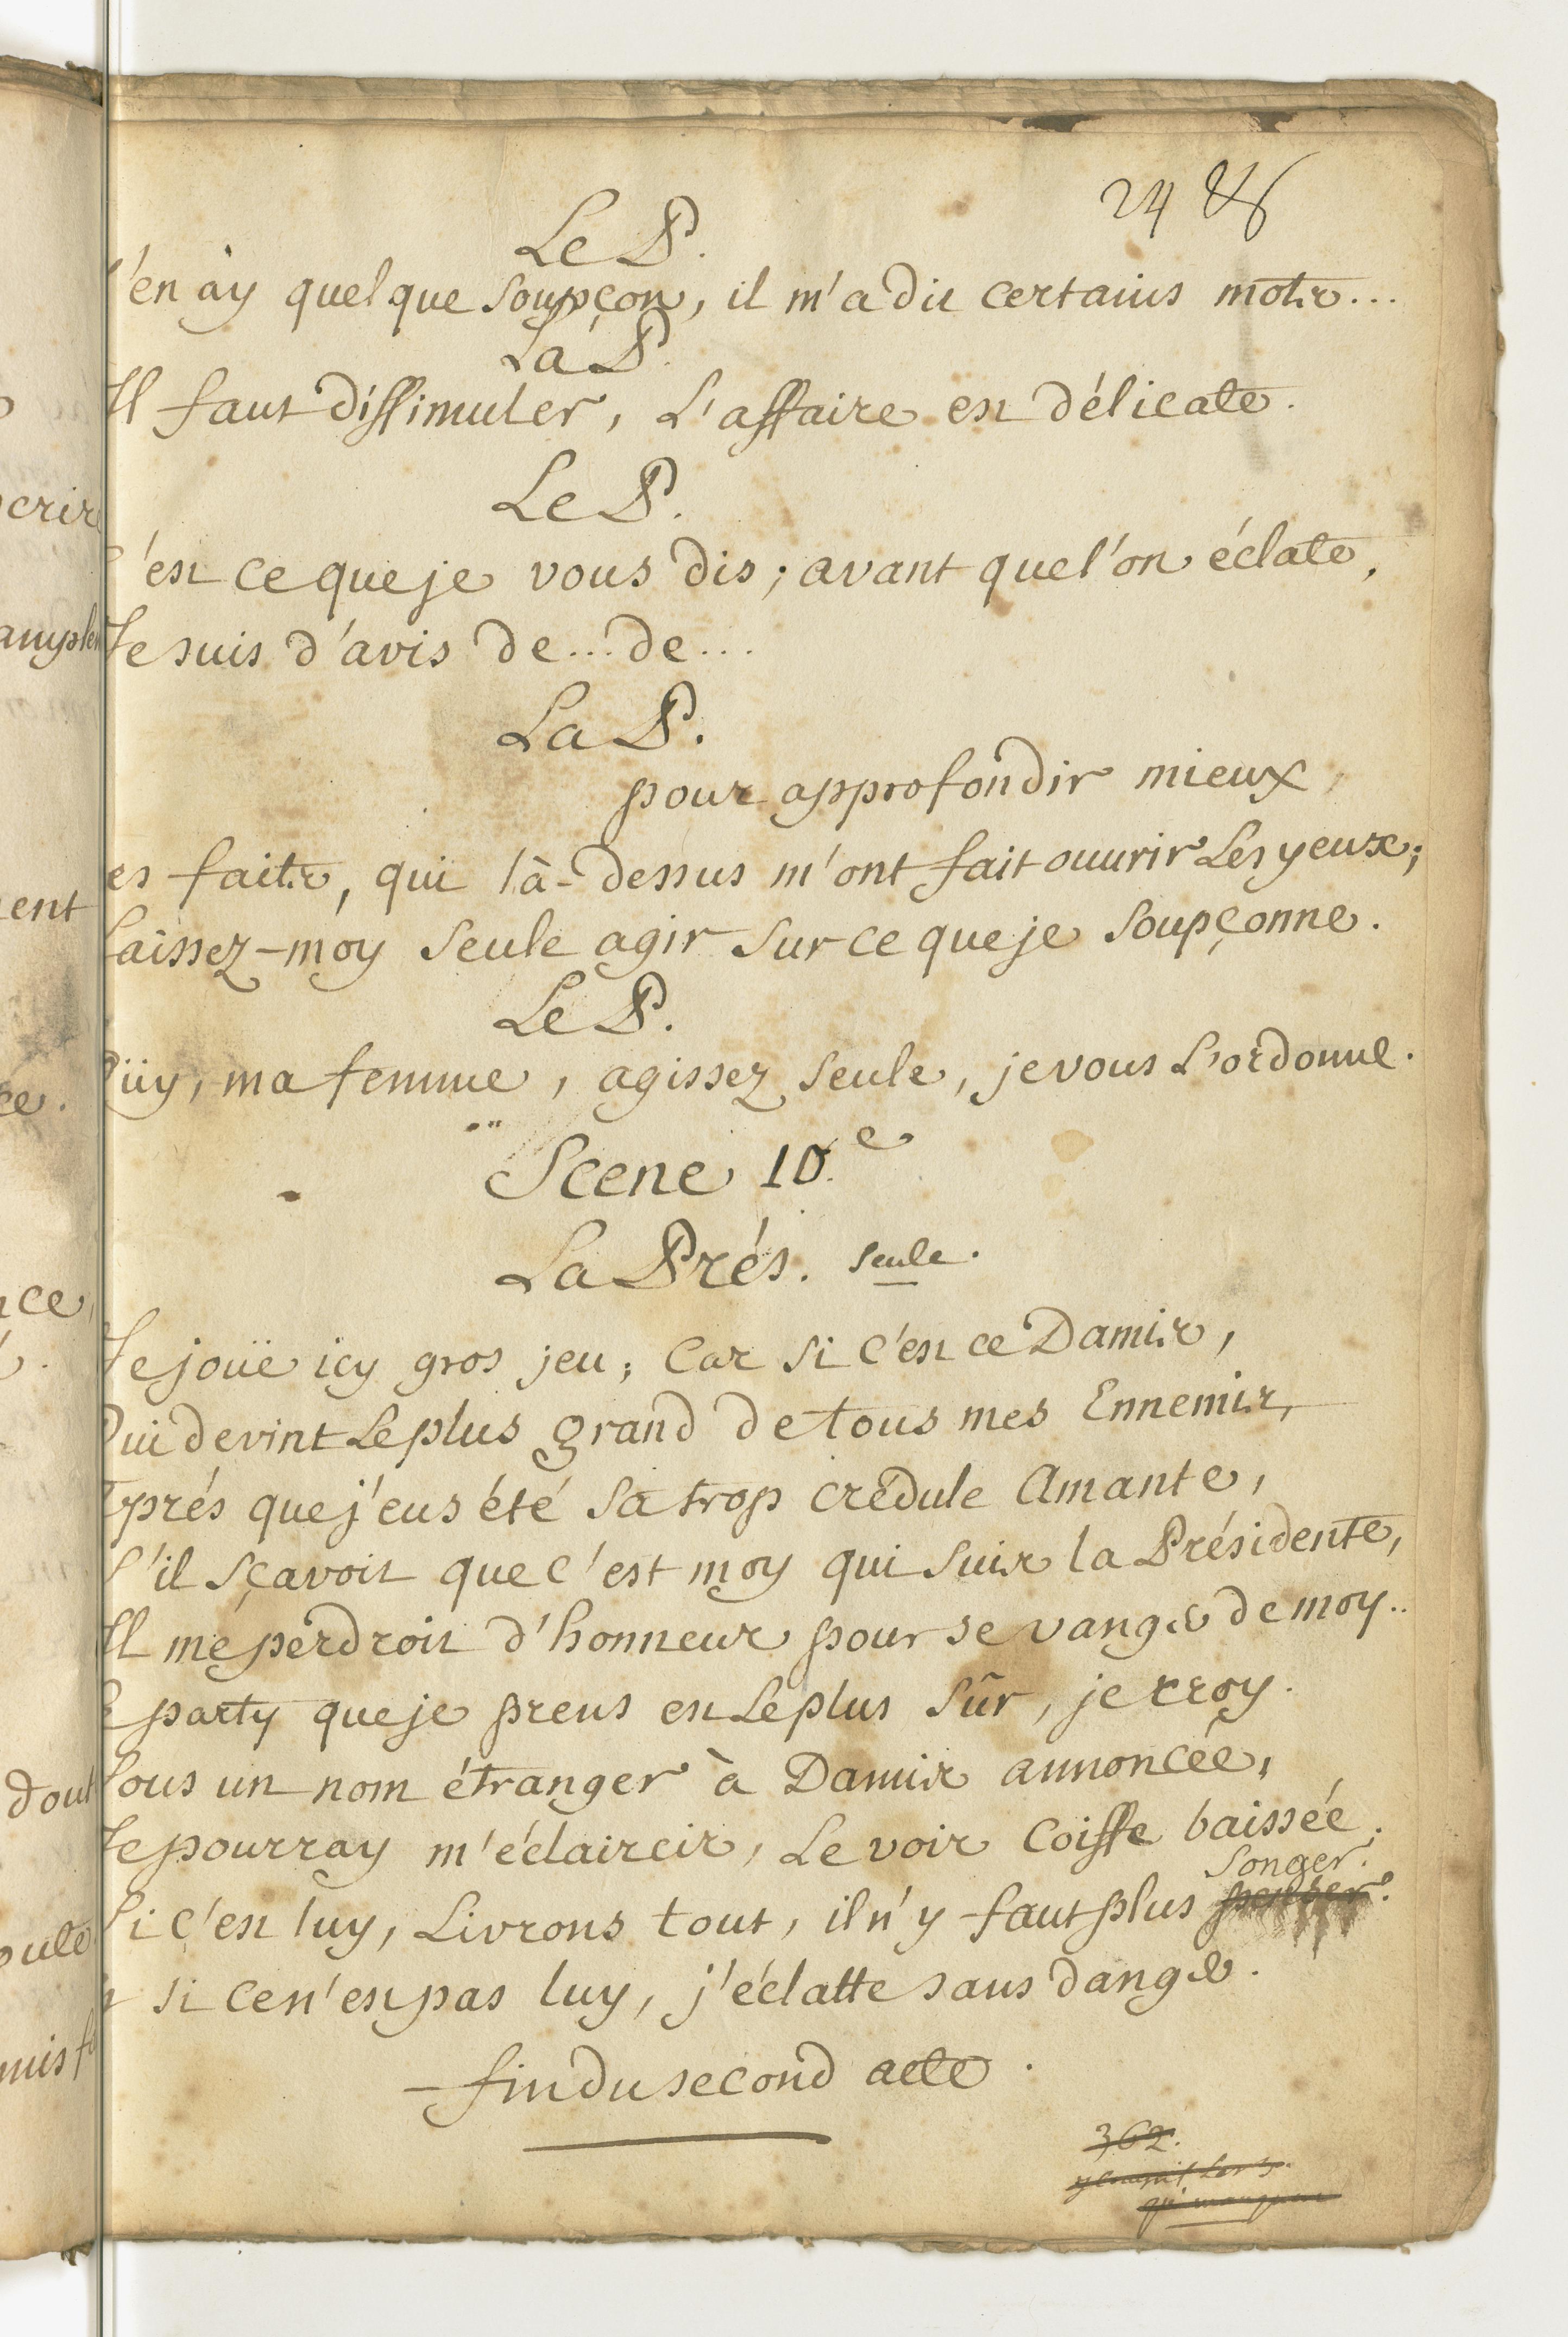 24
Le P.
J'en ay quelque soupçon, il m'a dit certains mots...
La P.
Il faut dissimuler, L'affaire est délicate.
Le P.
C'est ce que je vous dis ; avant que l'on éclate,
Je suis d'avis de... de...
La P.
pour approfondir mieux,
es faits, qui là-dessus m'ont fait ouurir Les yeux ;
Laissez-moy seule agir sur ce que je soupçonne.
Le P.
Oüy, ma femme, agissez seule, je vous L'ordonne.
Scene 10.e
La Prés. seule.
Je joüe icy gros jeu ; Car si c'est ce Damis,
Qui devint Le plus grand de tous mes Ennemis,
Aprés que j'eus été sa trop crédule Amante,
S'il sçavoit que c'est moy qui suis la Présidente,
Il me perdroit d'honneur pour se vanger de moy..
Le party que je prens est Le plus sûr, je croy.
Sous un nom étranger à Damis annoncée,
Je pourray m'éclaircir, Le voir Coiffe baissée ;
songer.
Si c'est luy, Livrons tout, il n'y faut plus penser.
Et si ce n'est pas luy, j'éclatte sans danger.
fin du second acte.
362.
crire
ent
ce.
nce,
dout